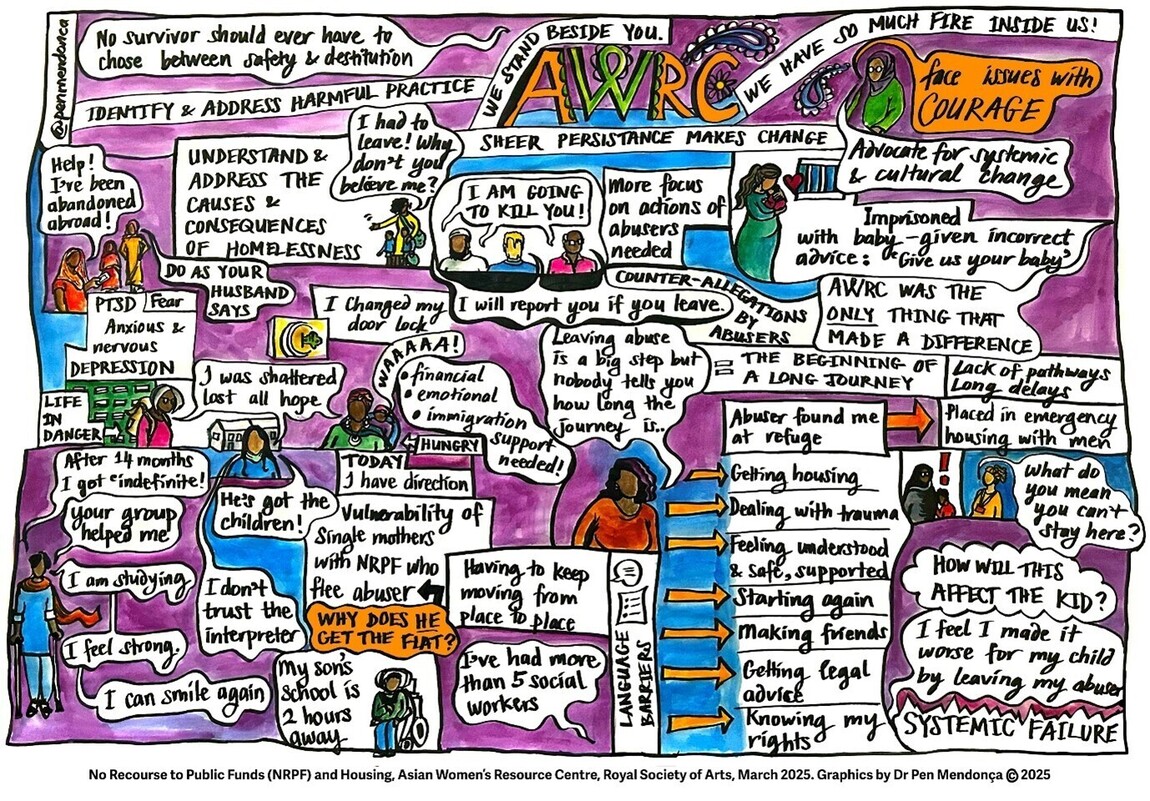 @penmendonca
No survivor should ever have to
chose between safety & destitution
IDENTIFY & ADDRESS HARMFUL PRACTICE
WE STAND BESIDE YOU.
AWRC
WE HAVE SO MUCH FIRE INSIDE US!
face issues with
COURAGE
SHEER PERSISTANCE MAKES CHANGE
Help!
I've been
abandoned
abroad!
UNDERSTAND &
ADDRESS THE
CAUSES &
CONSEQUENCES
OF HOMELESSNESS
I had to
leave! Why
don't you
believe me?
I AM GOING
TO KILL YOU!
More focus
on actions of
abusers
needed
Advocate for systemic
& cultural change
Imprisoned
with baby - given incorrect
advice: "Give us your baby"
DO AS YOUR
HUSBAND
SAYS
I changed my
door lock!
I will report you if you leave.
COUNTER-ALLEGATIONS
BY
ABUSERS
AWRC WAS THE
ONLY THING THAT
MADE A DIFFERENCE
PTSD Fear
Anxious &
nervous
DEPRESSION
LIFE
IN
DANGER
I was shattered
lost all hope
WAAAAA!
• financial
• emotional
• immigration
support
needed!
HUNGRY
Leaving abuse
is a big step but
nobody tells you
how long the
journey is..
= THE BEGINNING OF
A LONG JOURNEY
Lack of pathways
Long delays
Abuser found me
at refuge
Placed in emergency
housing with men
After 14 months
I got "indefinite!
your group
helped me
I am studying
I feel strong.
I can smile again
He's got the
children!
I don't
trust the
interpreter
TODAY
I have direction
Vulnerability of
Single mothers
with NRPF who
flee abuser
WHY DOES HE
GET THE FLAT?
My son's
school is
2 hours
away
Having to keep
moving from
place to place
I've had more
than 5 social
workers
LANGUAGE
BARRIERS
Getting housing
Dealing with trauma
Feeling understood
& safe, supported
Starting again
Making friends
Getting legal
advice
Knowing my
rights
!
What do
you mean
you can't
stay here?
HOW WILL THIS
AFFECT THE KID?
I feel I made it
worse for my child
by leaving my abuser
SYSTEMIC FAILURE
No Recourse to Public Funds (NRPF) and Housing, Asian Women's Resource Centre, Royal Society of Arts, March 2025. Graphics by Dr Pen Mendonça © 2025